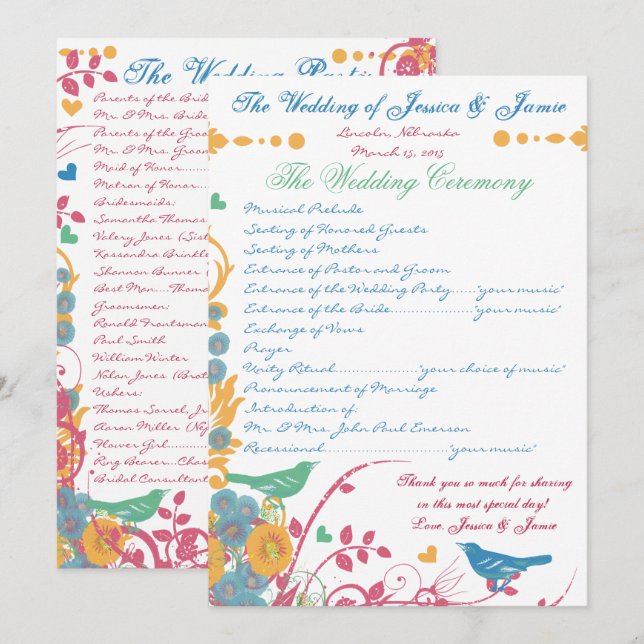 The Wedding Party
Parents of the Brid
Mr. & Mrs. Brid
Parents of the Groom
Mr. & Mrs. Groom
Maid of Honor
Matron of Honor
Bridesmaids:
Samantha Thomas
Valery Jones (Sist
Kassandra Brinkle
Shannon Bunner
Best Man....Thoma
Groomsmen:
Ronald Frontsman
Paul Smith
William Winter
Nolan Jones (Brot
Ushers:
Thomas Sorrel, Jr
Aaron Miller (Nep
Flower Girl
Ring Bearer...Chas
Bridal Consultant
The Wedding of Jessica & Jamie
Lincoln, Nebraska
March 15, 2015
The Wedding Ceremony
Musical Prelude
Seating of Honored Guests
Seating of Mothers
Entrance of Pastor and Groom
Entrance of the Wedding Party......"your music"
Entrance of the Bride.................."your music"
Exchange of Vows
Prayer
Unity Ritual...................."your choice of music"
Pronouncement of Marriage
Introduction of:
Mr. & Mrs. John Paul Emerson
Recessional............................"your music"
Thank you so much for sharing
in this most special day!
Love, Jessica & Jamie